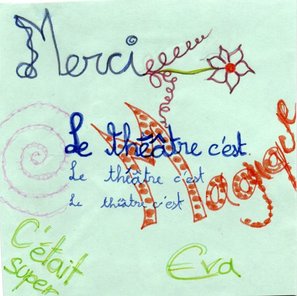 Merci
Le théâtre c'est.
Le théâtre c'est
Le théâtre c'est
Magique
C'était
super
Eva